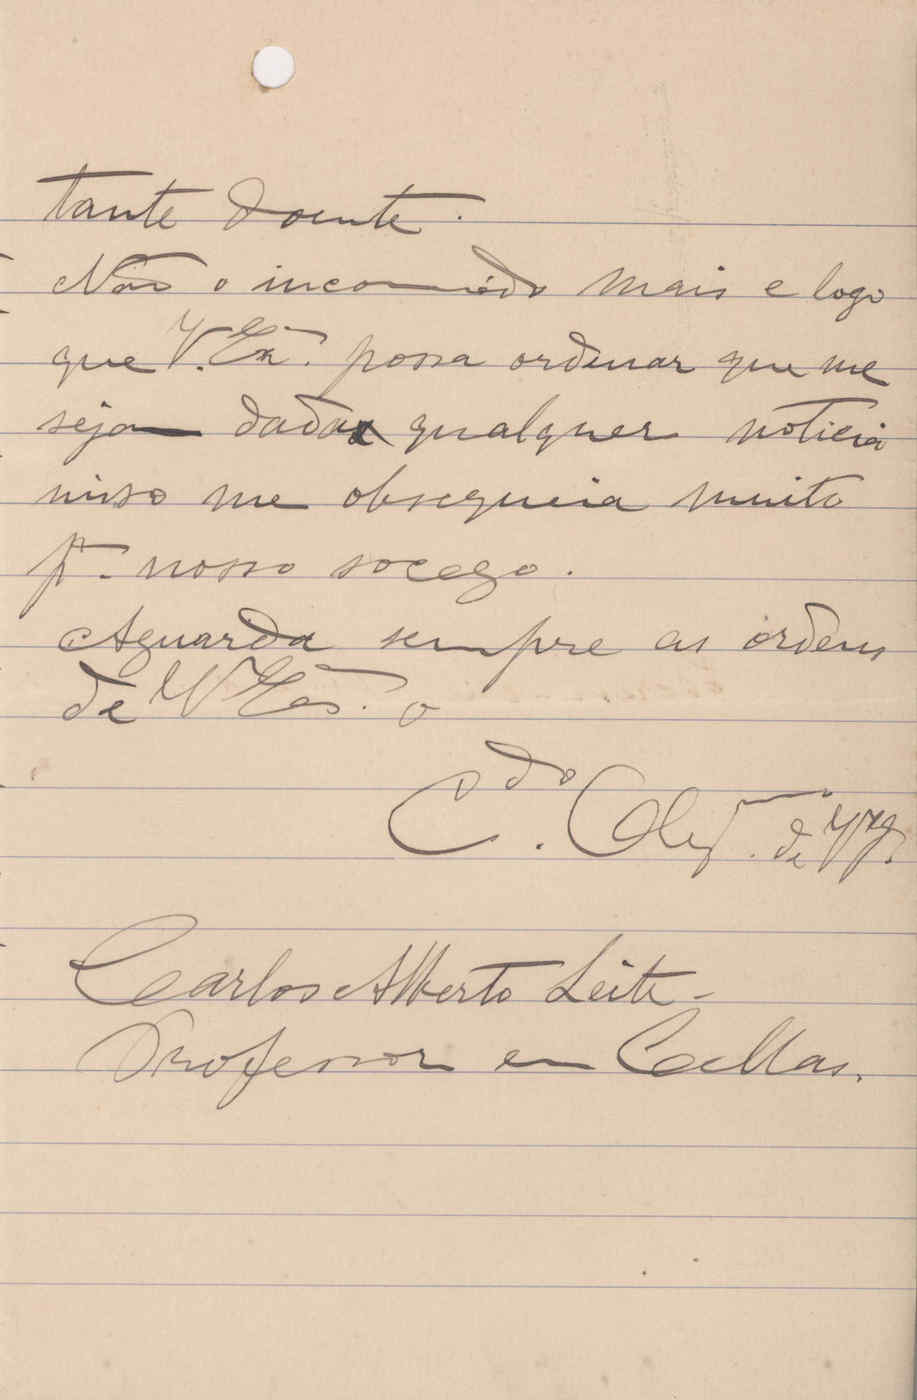 tante doente.
Não o incomódo mais e logo
que V. Exª. possa ordenar que me
seja dada qualquer noticia
nisso me obsequeia muito
pª. nosso socego.
Aguarda sempre as ordens
de V. Exas. o
C.do Obgº. de
Carlos Alberto Leite-
Professor em Cellas.